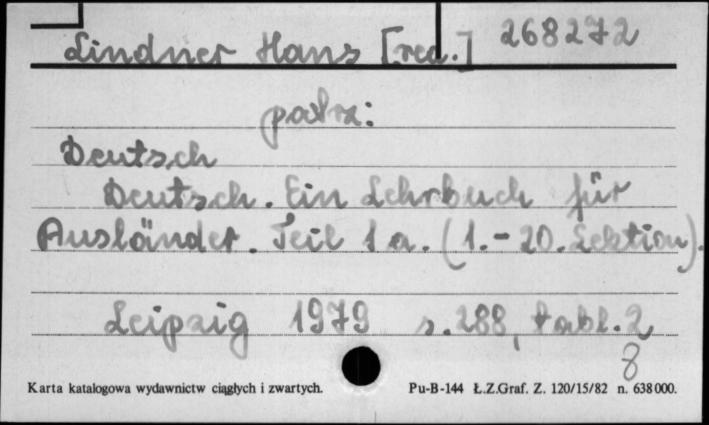 Lindner Hans [red.] 268272
patrz:
Deutsch
Deutsch. Ein Lehrbuch für
Ausländer. Teil 1a. (1.-20. Lektion).
Leipzig 1979 s. 288, tabl. 2
8
Karta katalogowa wydawnictw ciągłych i zwartych. Pu-B-144 Ł.Z.Graf. Z. 120/15/82 n. 638000.